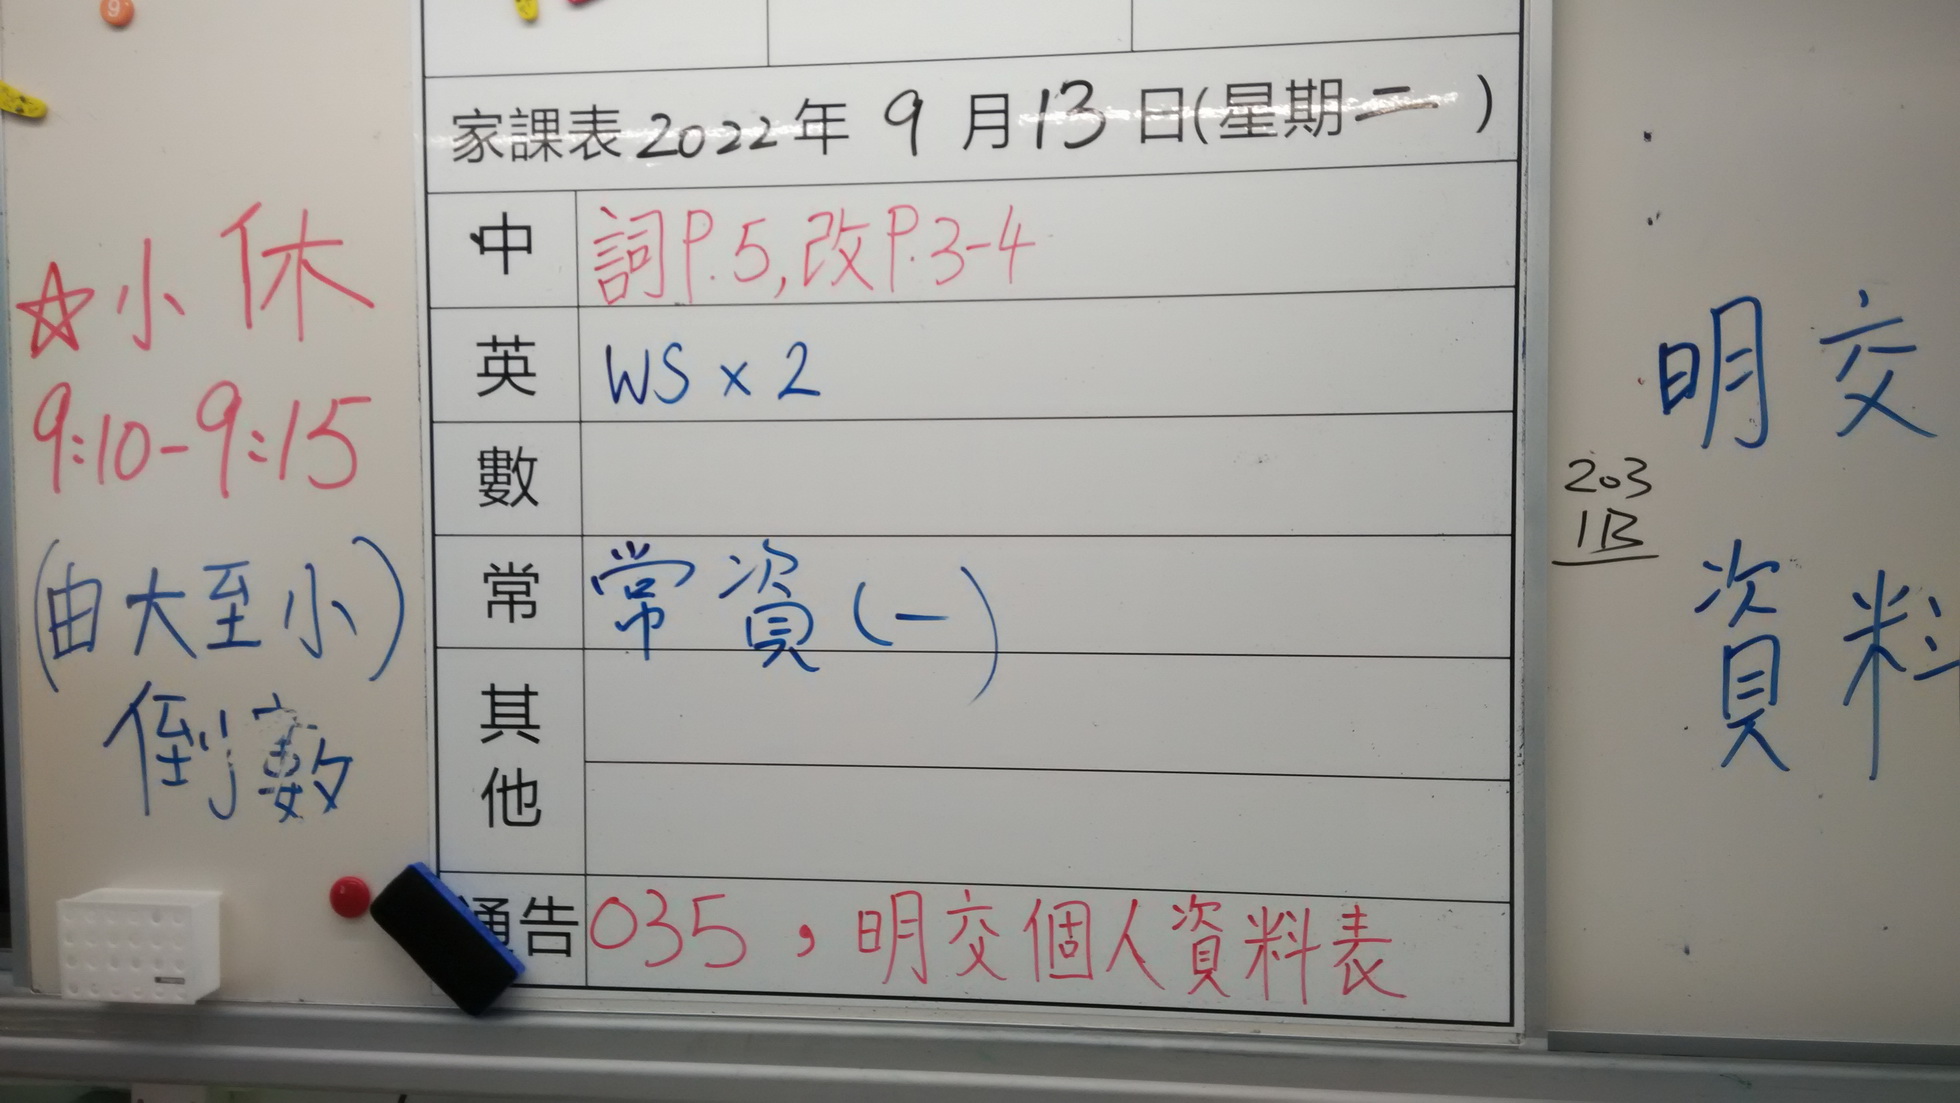 9
家課表2022年9月13日(星期二)
中 詞P.5,改P.3-4
英 WS x 2
數
常 常資(一)
其他
通告 035，明交個人資料表
☆小休
9:10-9:15
(由大至小)
倒數
明交
資料
203
1B